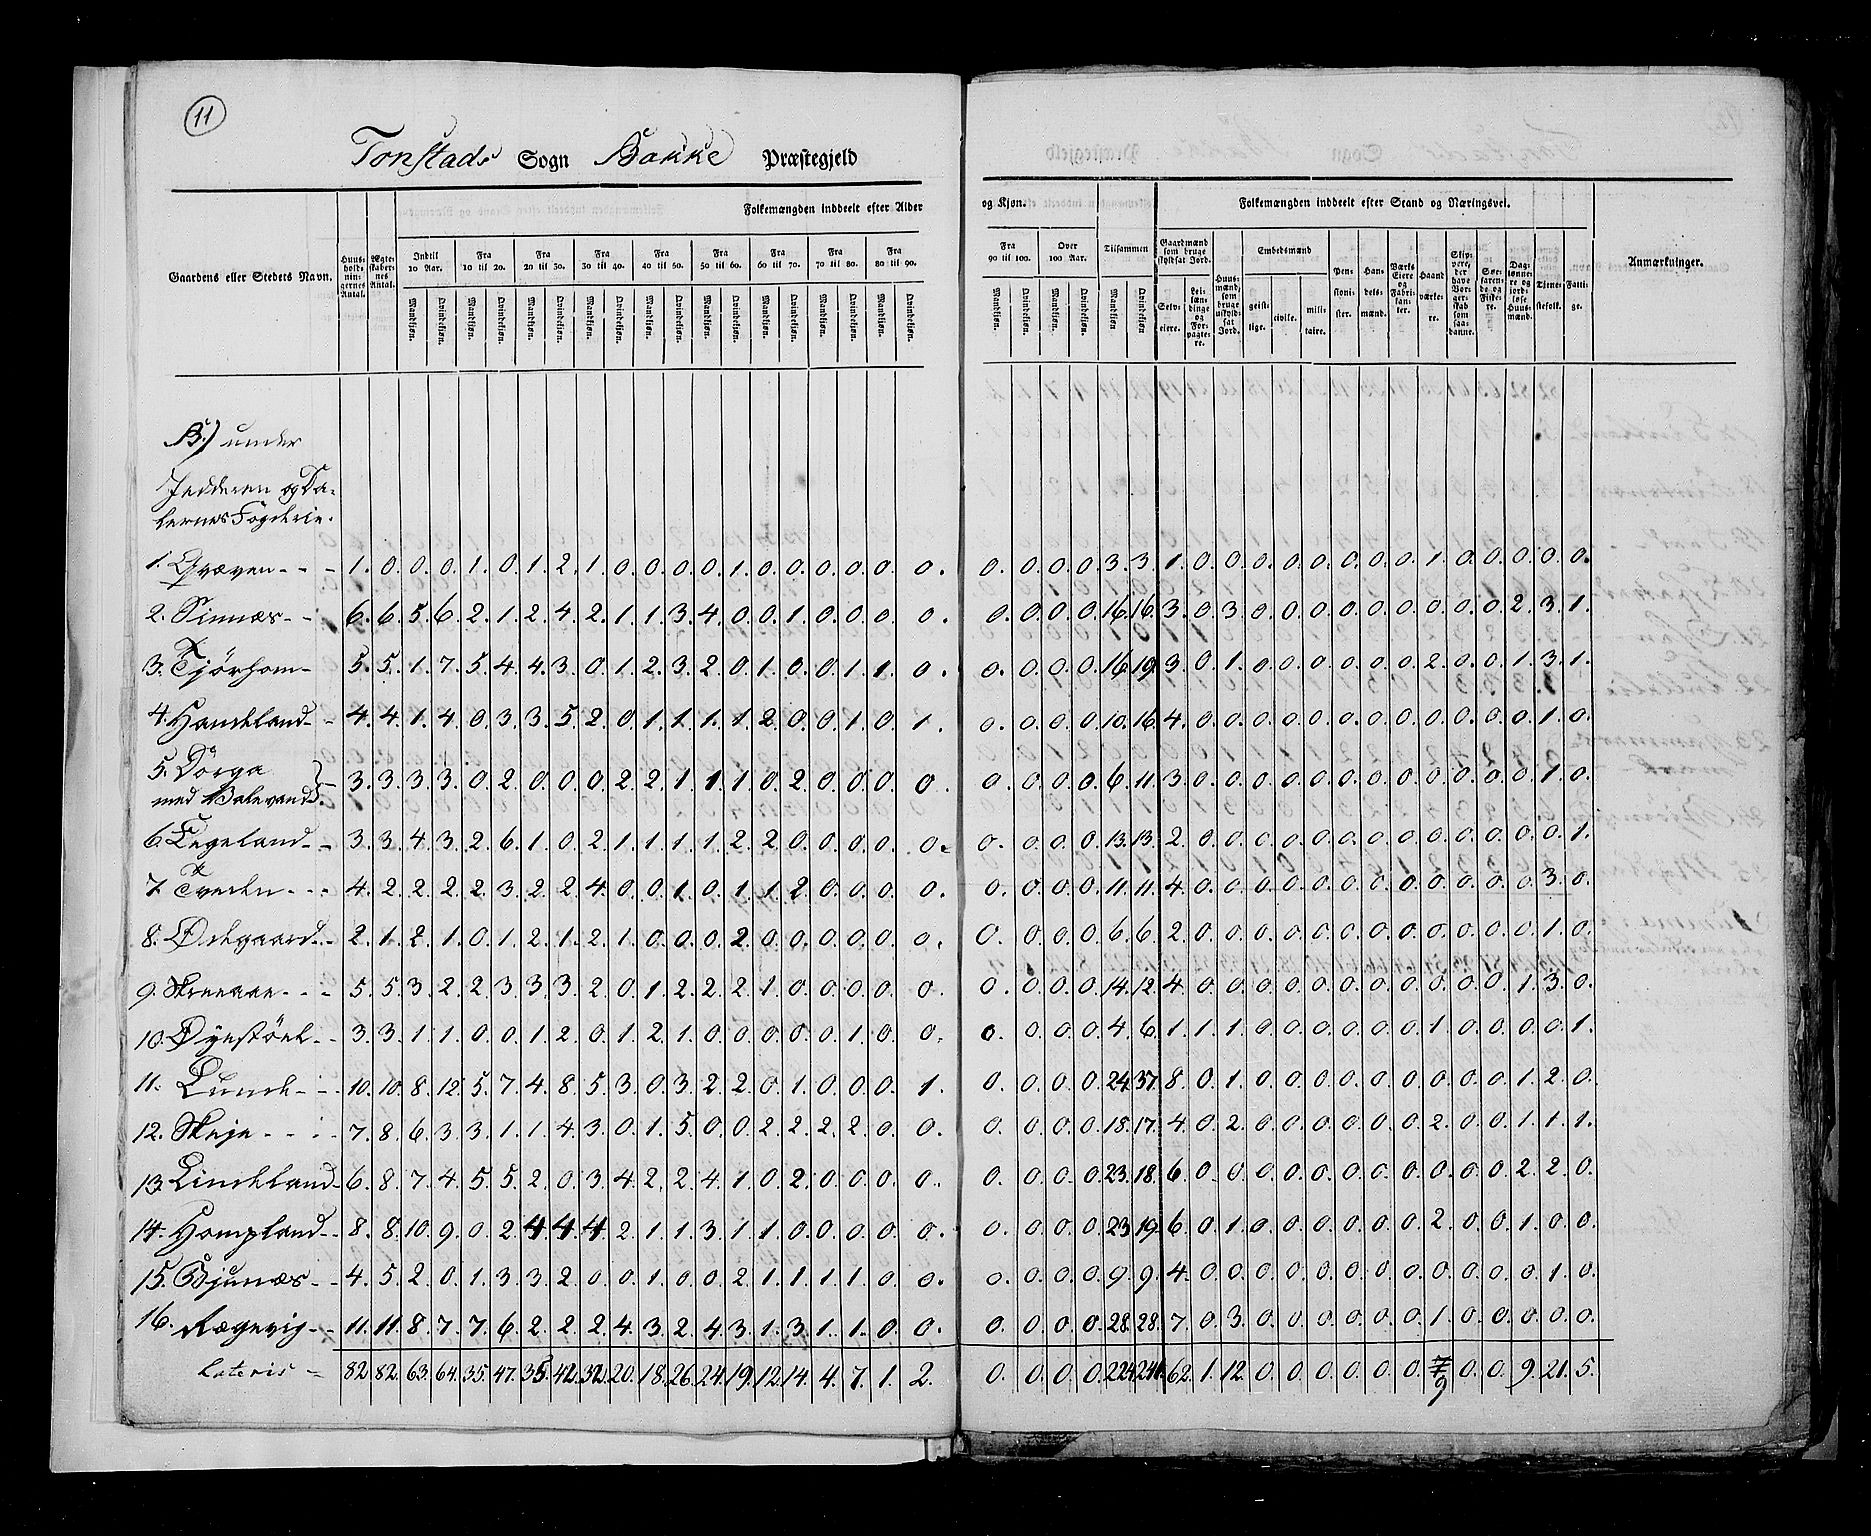 11
Tonstads Sogn Bakke Præstegjeld
Folkemængden inddeelt efter Alder og Kjøn. Folkemængden inddeelt efter Stand og Næringsvei.
Gaardens eller Stedets Navn. Huusholdningernes Antal. Ægteskabernes Antal. Indtil 10 Aar. Fra 10 til 20. Fra 20 til 30. Fra 30 til 40. Fra 40 til 50. Fra 50 til 60. Fra 60 til 70. Fra 70 til 80. Fra 80 til 90. Fra 90 til 100. Over 100 Aar. Tilsammen Gaardmænd som bruge skyldsat Jord. Huusmænd, som bruge uskyldsat Jord. Embedsmænd Pensionister. Handelsmænd. Værks Eiere og Fabrikanter. Haandværkere. Skippere, der have Borgerskab som saadanne. Søefarende og Fiskere. Dagleiønnere og jordløse Huusmænd. Tjenestefolk. Fattige. Anmærkninger.
Mandkjøn. Qvindekjøn. Mandkjøn. Qvindekjøn. Mandkjøn. Qvindekjøn. Mandkjøn. Qvindekjøn. Mandkjøn. Qvindekjøn. Mandkjøn. Qvindekjøn. Mandkjøn. Qvindekjøn. Mandkjøn. Qvindekjøn. Mandkjøn. Qvindekjøn. Mandkjøn. Qvindekjøn. Mandkjøn. Qvindekjøn. Mandkjøn. Qvindekjøn. Selveiere. Leilændinge og Forpagtere. geistlige. civile. militaire.
B.) under
Jedderen og Da-
lernes Fogderie.
1. Qvæven - - - 1. 0. 0. 0. 1. 0. 1. 2. 1. 0. 0. 0. 0. 1. 0. 0. 0. 0. 0. 0. 0. 0. 0. 0. 3. 3. 1. 0. 0. 0. 0. 0. 0. 0. 0. 1. 0. 0. 0. 0. 0.
2. Sinnæs - - 6. 6. 5. 6. 2. 1. 2. 4. 2. 1. 1. 3. 4. 0. 0. 1. 0. 0. 0. 0. 0. 0. 0. 0. 16. 16. 3. 0. 3. 0. 0. 0. 0. 0. 0. 0. 0. 0. 2. 3. 1.
3. Tjørhom - 5. 5. 1. 7. 5. 4. 4. 3. 0. 1. 2. 3. 2. 0. 1. 0. 0. 1. 1. 0. 0. 0. 0. 0. 16. 19. 3. 0. 1. 0. 0. 0. 0. 0. 0. 2. 0. 0. 1. 3. 1.
4. Handeland - - 4. 4. 1. 4. 0. 3. 3. 5. 2. 0. 1. 1. 1. 1. 2. 0. 0. 1. 0. 1. 0. 0. 0. 0. 10. 16. 4. 0. 0. 0. 0. 0. 0. 0. 0. 0. 0. 0. 0. 1. 0.
5. Dorga
med Balevand - 3. 3. 3. 3. 0. 2. 0. 0. 0. 2. 2. 1. 1. 1. 0. 2. 0. 0. 0. 0 0. 0. 0. 0 6. 11. 3. 0. 0. 0. 0. 0. 0. 0. 0. 0. 0. 0. 0. 1. 0.
6. Fegeland - - 3. 3. 4. 3. 2. 6. 1. 0. 2. 1. 1. 1. 1. 2. 2. 0. 0. 0. 0. 0. 0. 0. 0. 0. 13. 13. 2. 0. 0. 0. 0. 0. 0. 0. 0. 0. 0. 0. 0. 0. 1.
7. Tveden - - - 4. 2. 2. 2. 2. 3. 2. 2. 4. 0. 0. 1. 0. 1. 1. 2. 0. 0. 0. 0. 0. 0. 0. 0. 11. 11. 4. 0. 0. 0. 0. 0. 0. 0. 0. 0. 0. 0. 0. 3. 0.
8. Ødegaard - - 2. 1. 2. 1. 0. 1. 2. 1. 2. 1. 0. 0. 0. 2. 0. 0. 0. 0. 0. 0. 0. 0. 0. 0. 6. 6. 2. 0. 0. 0. 0. 0. 0. 0. 0. 0. 0. 0. 0. 1. 0.
9. Skreaae - - - 5. 5. 3. 2. 2. 3. 3. 3. 2. 0. 1. 2. 2. 2. 1. 0. 0. 0. 0. 0. 0. 0. 0. 0. 14. 12. 4. 0. 0. 0. 0. 0. 0. 0. 0. 0. 0. 0. 1. 3. 0.
10. Øyestøel - - 3. 3. 1. 1. 0. 0. 1. 2. 0. 1. 2. 1. 0. 0. 0. 0. 0. 1. 0. 0. 0. 0. 0. 0. 4. 6. 1. 1. 1. 0. 0. 0. 0. 0. 0. 1. 0. 0. 0. 0. 1.
11. Lunde - - - 10. 10. 8. 12. 5. 7. 4. 8. 5. 3. 0. 3. 2. 2. 0. 1. 0. 0. 0. 1. 0. 0. 0. 0. 24. 37. 8. 0. 1. 0. 0. 0. 0. 0. 0. 0. 0. 0. 1. 2. 0.
12. Skeje - - - - 7. 8. 6. 3. 3. 1. 1. 4. 3. 0. 1. 5. 0. 0. 2. 2. 2. 2. 0. 0. 0. 0. 0. 0. 18. 17. 4. 0. 2. 0. 0. 0. 0. 0. 0. 2. 0. 0. 1. 1. 1.
13. Lindeland - 6. 8. 7. 4. 5. 5. 2. 0. 3. 4. 2. 2. 4. 1. 0. 2. 0. 0. 0. 0. 0. 0. 0. 0. 23. 18. 6. 0. 0. 0. 0. 0. 0. 0. 0. 0. 0. 0. 2. 2. 0.
14. Hompland - - 8. 8. 10. 9. 0. 2. 4. 4. 4. 2. 1. 1. 3. 1. 1. 0. 0. 0. 0. 0. 0. 0. 0. 0. 23. 19. 6. 0. 1. 0. 0. 0. 0. 0. 0. 2. 0. 0. 1. 0. 0.
15. Bjunæs - - 4. 5. 2. 0. 1. 3. 3. 2. 0. 0. 1. 0. 0. 2. 1. 1. 1. 1. 0. 0. 0. 0. 0. 0. 9. 9. 4. 0. 0. 0. 0. 0. 0. 0. 0. 0. 0. 0. 0. 1. 0.
16. Rægevig - - 11. 11. 8. 7. 7. 6. 2. 2. 2. 4. 3. 2. 4. 3. 1. 3. 1. 1. 0. 0. 0. 0. 0. 0. 28. 28. 7. 0. 3. 0. 0. 0. 0. 0. 0. 1. 0. 0. 0. 0. 0.
Lateris - 82. 82. 63. 64. 35. 47. 35. 42. 32. 20. 18. 26. 24. 19. 12. 14. 4. 7. 1. 2. 0. 0. 0. 0. 224. 241. 62. 1. 12. 0. 0. 0. 0. 0. 0. 7 0. 0. 9. 21. 5.
9